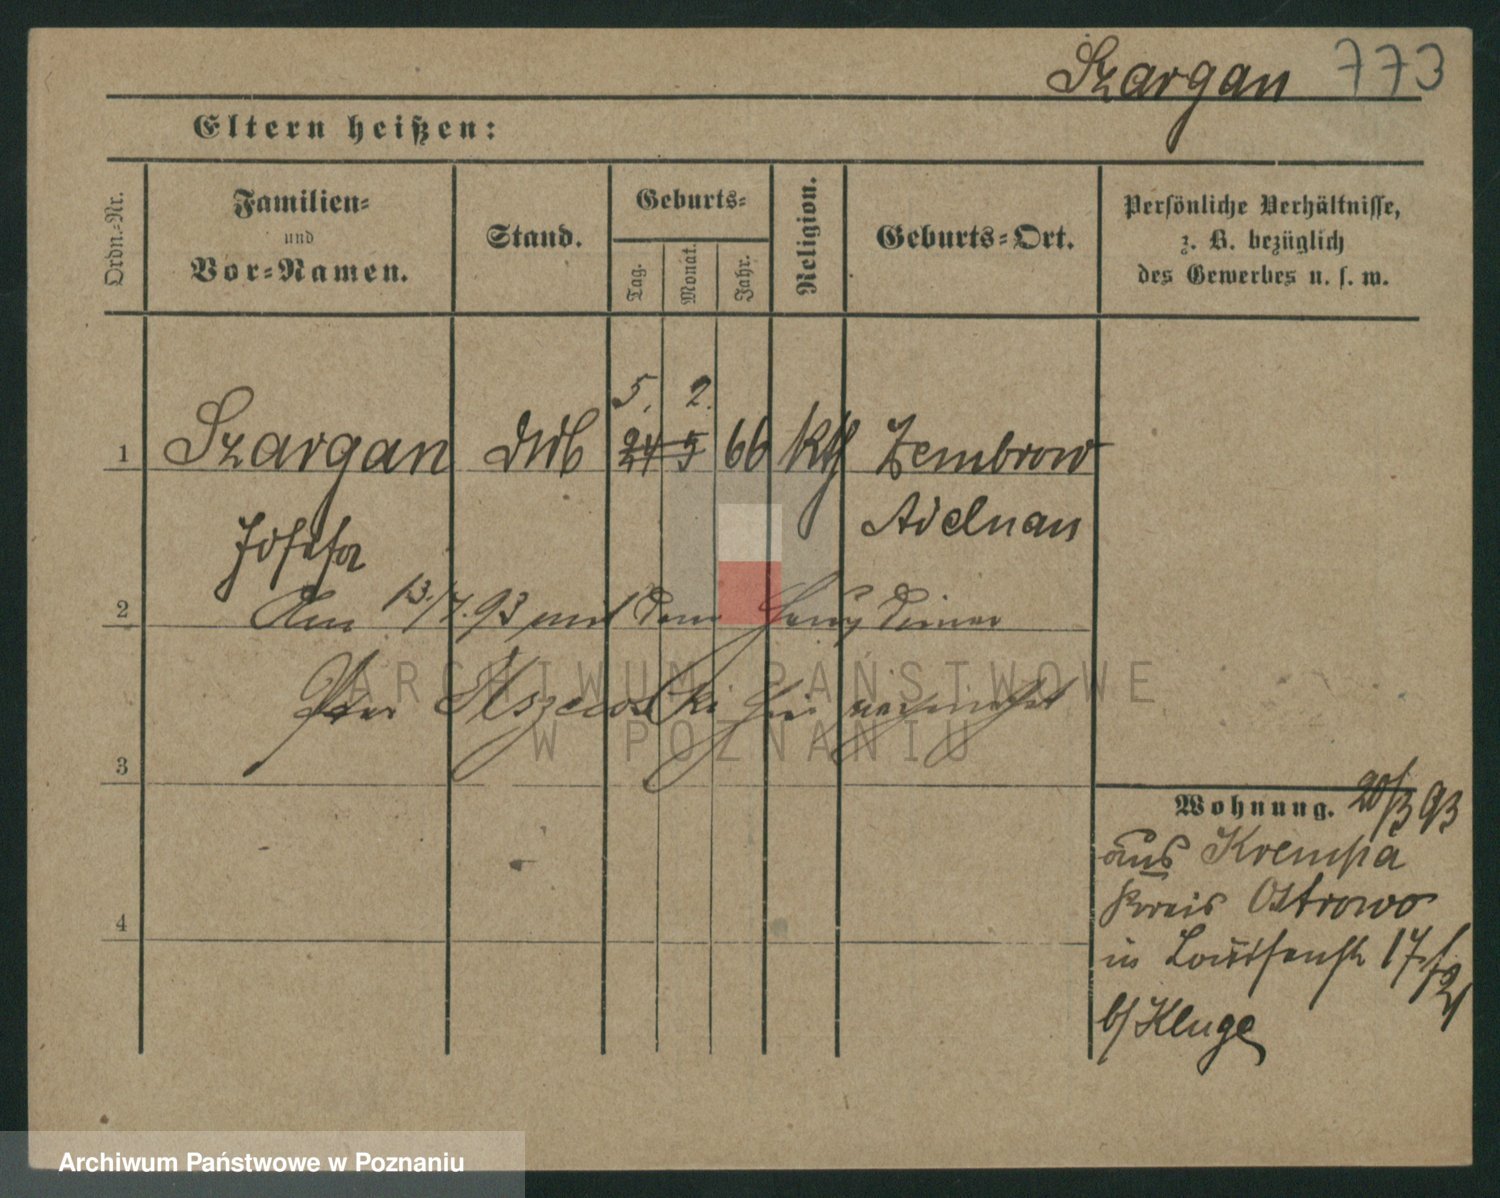 Szargan 773
Eltern heißen:
Ordn.-Nr.
Familien-
und
Vor-Namen.
Stand.
Geburts-
Tag.
Monat.
Jahr.
Religion.
Geburts-Ort.
Persönliche Verhältnisse,
z. B. bezüglich
des Gewerbes u. s. w.
5. 2.
1 Szargan 24 5 66 kth Zembrow
Josefa Adelnau
2 Am 13./7. 93 mit dem
3
Wohnung. 20/3 93
aus Krempa
Kreis Ostrowo
in Louisenst 17
b/ Kluge
4
ARCHIWUM PAŃSTWOWE
W POZNANIU
Archiwum Państwowe w Poznaniu